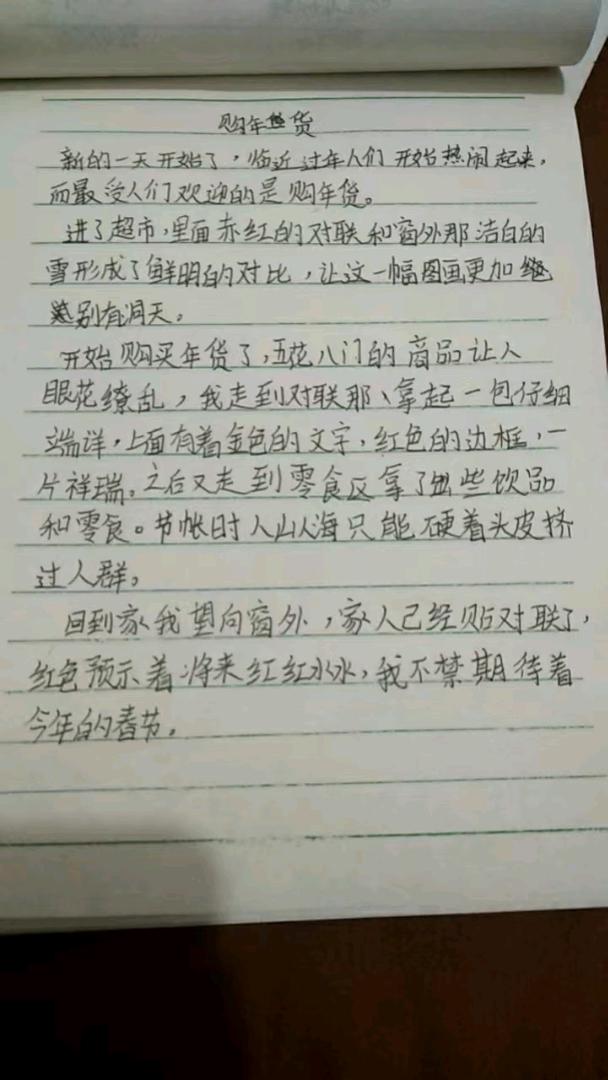 购年货
新的一天开始了，临近过年人们开始热闹起来，
而最受人们欢迎的是购年货。
进了超市，里面赤红的对联和窗外那洁白的
雪形成了鲜明的对比，让这一幅图画更加
别有洞天。
开始购买年货了，五花八门的商品让人
眼花缭乱，我走到对联那、拿起一包仔细
端详，上面有着金色的文字，红色的边框，一
片祥瑞。之后又走到零食区拿了些饮品
和零食。节帐时人山人海只能硬着头皮挤
过人群。
回到家我望向窗外，家人已经贴对联了，
红色预示着将来红红火火，我不禁期待着
今年的春节。